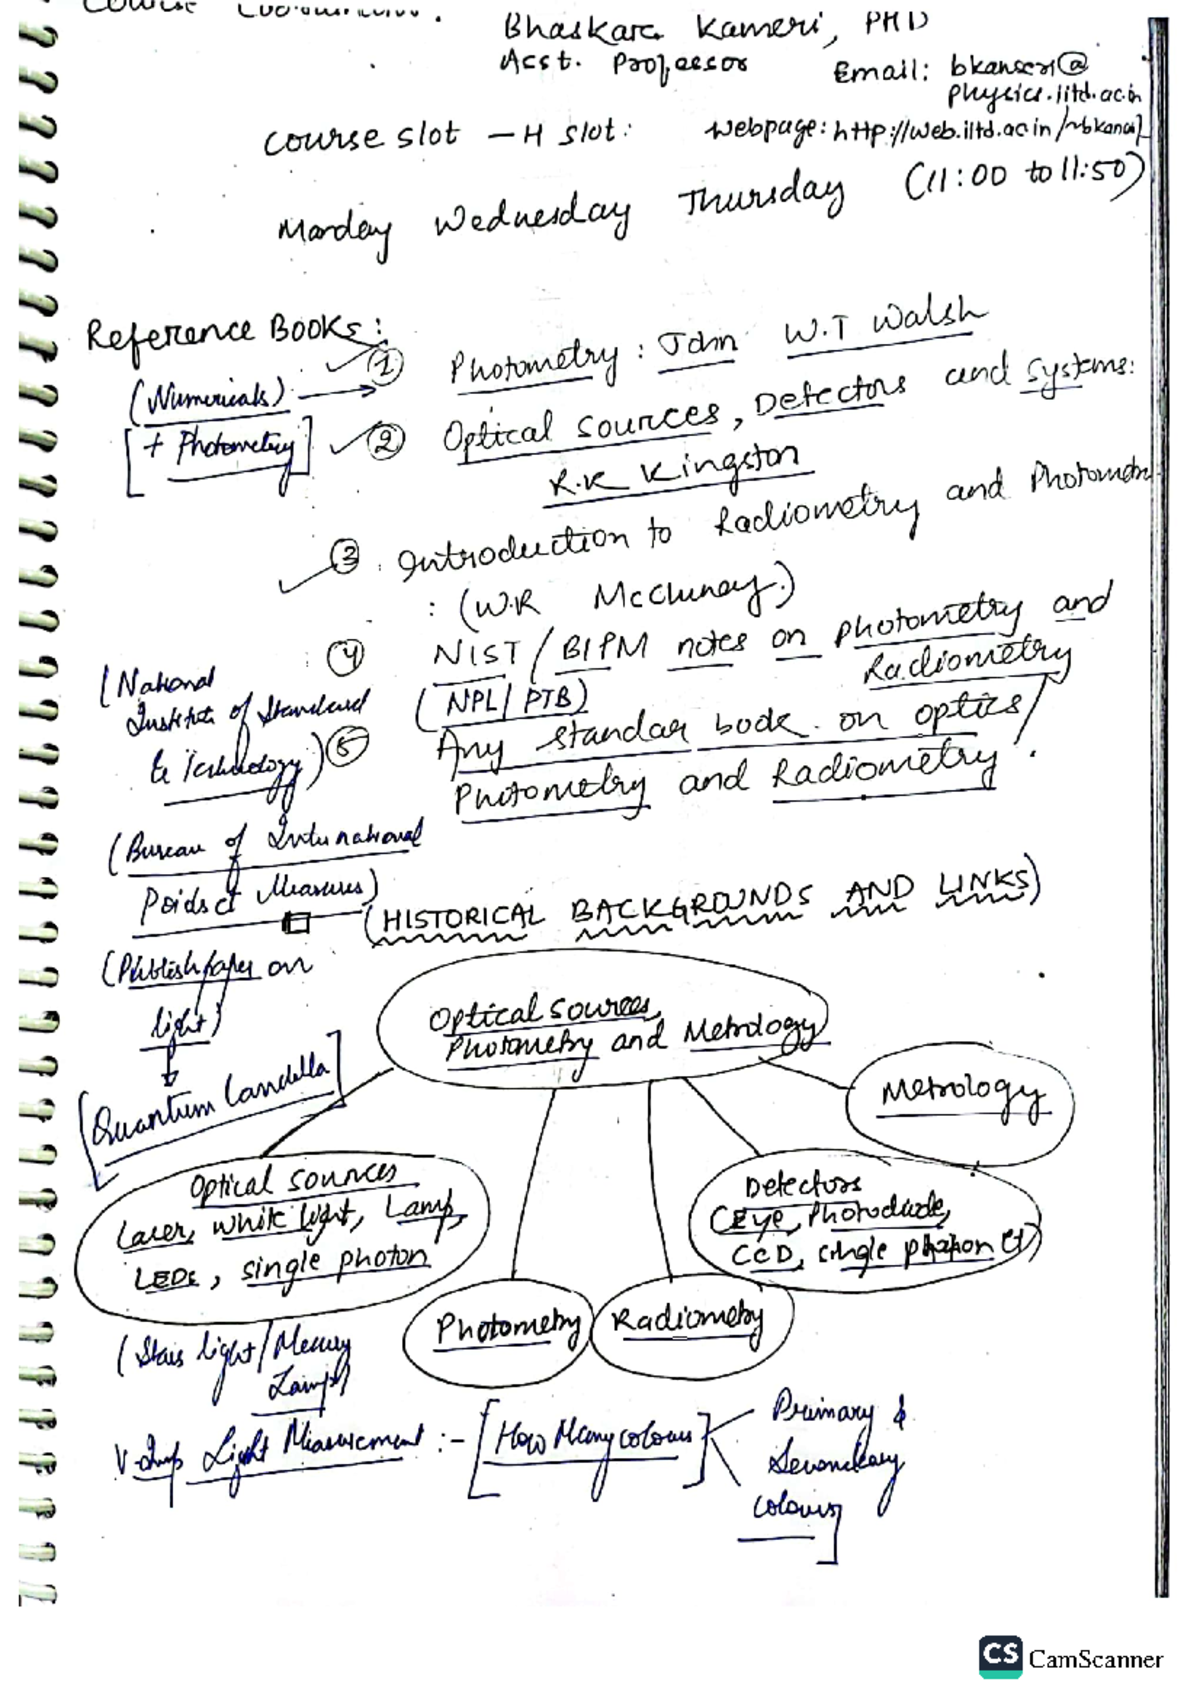 Course
Bhaskara Kameri, PHD
Asst. Professor
Email: bkanseri@
physics.iitd.ac.in
Course slot - H slot:
Webpage: http://web.iitd.ac.in/~bkansel
Monday Wednesday Thursday (11:00 to 11:50)
Reference Books:
(Numericals) → ① Photometry: John W.T Walsh
[+ Photometry] ② Optical sources, Detectors and systems:
R.K Kingston
③ Introduction to Radiometry and Photometr
: (W.R McCluney)
④ NIST / BIPM notes on photometry and
Radiometry
(NPL/ PTB)
(National
Institute of Standard
& Technology)
⑤ Any standar book on optics/
Photometry and Radiometry.
(Bureau of International
Poids et Measures)
(HISTORICAL BACKGROUNDS AND LINKS)
(Publish paper on
light)
[Quantum Candella]
Optical sources,
Photometry and Metrology
Metrology
Optical sources
Laser, white light, Lamp,
LEDs, single photon
Detectors
(Eye, Photodiode,
CCD, single photon ct)
Photometry
Radiometry
(Stars light/Mercury
Lamp)
V-Imp Light Measurement :- [How Many colours]
Primary &
Secondary
colours]
CS CamScanner